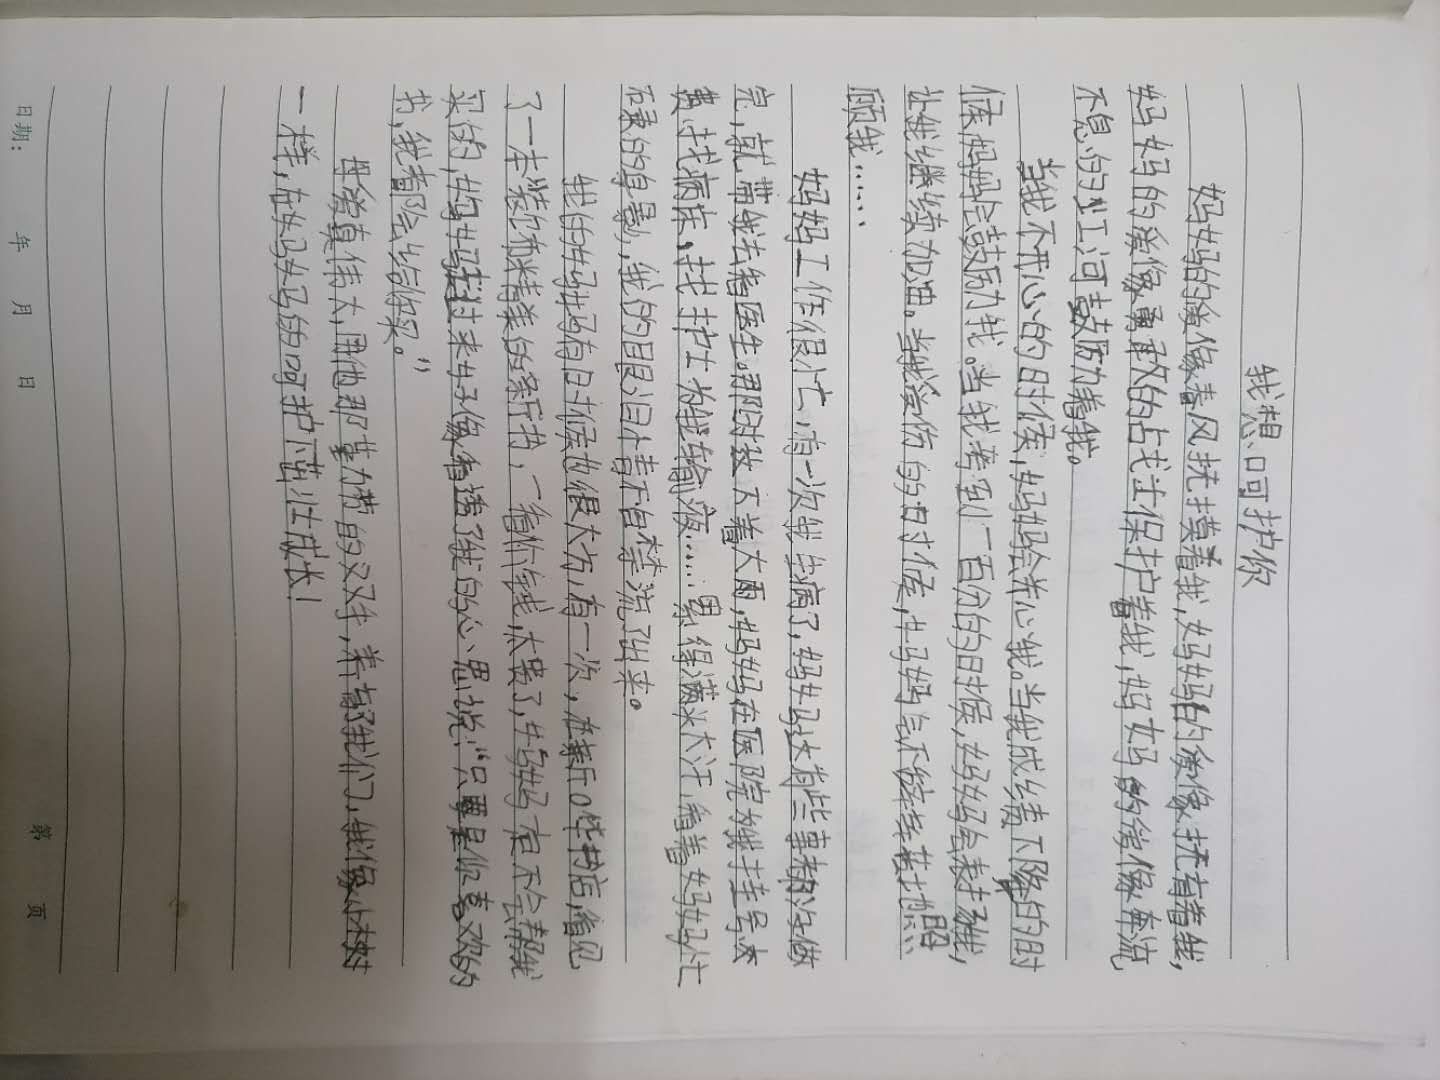 我想呵护你
妈妈的爱像春风抚摸着我,妈妈的爱像抚育着我,
妈妈的爱像勇敢的战士保护着我,妈妈的爱像奔流
不息的江河鼓励着我。
当我不开心的时候,妈妈会关心我。当我成绩下降的时
候妈妈会鼓励我。当我考到一百分的时候,妈妈会表扬我,
让我继续加油。当我受伤的时候,妈妈会不辞辛苦地照
顾我……
妈妈工作很忙,有一次我生病了,妈妈连有些事都没做
完,就带我去看医生。那时下着大雨,妈妈在医院为我挂号交
费,找病床,找护士为我输液……累得满头大汗,看着妈妈忙
碌的身影,我的眼泪情不自禁流了出来。
我的妈妈有时候也很大方,有一次,在新口华书店,看见
了一本装饰精美的新书,一看价钱,太贵了,妈妈肯定不会帮我
买的,妈妈走过来好像看透了我的心思说:“只要是你喜欢的
书,我都会给你买。”
母爱真伟大,用他那勤劳的双手,养育了我们,我像小树
一样,在妈妈的呵护下茁壮成长!
日期: 年 月 日 第 页